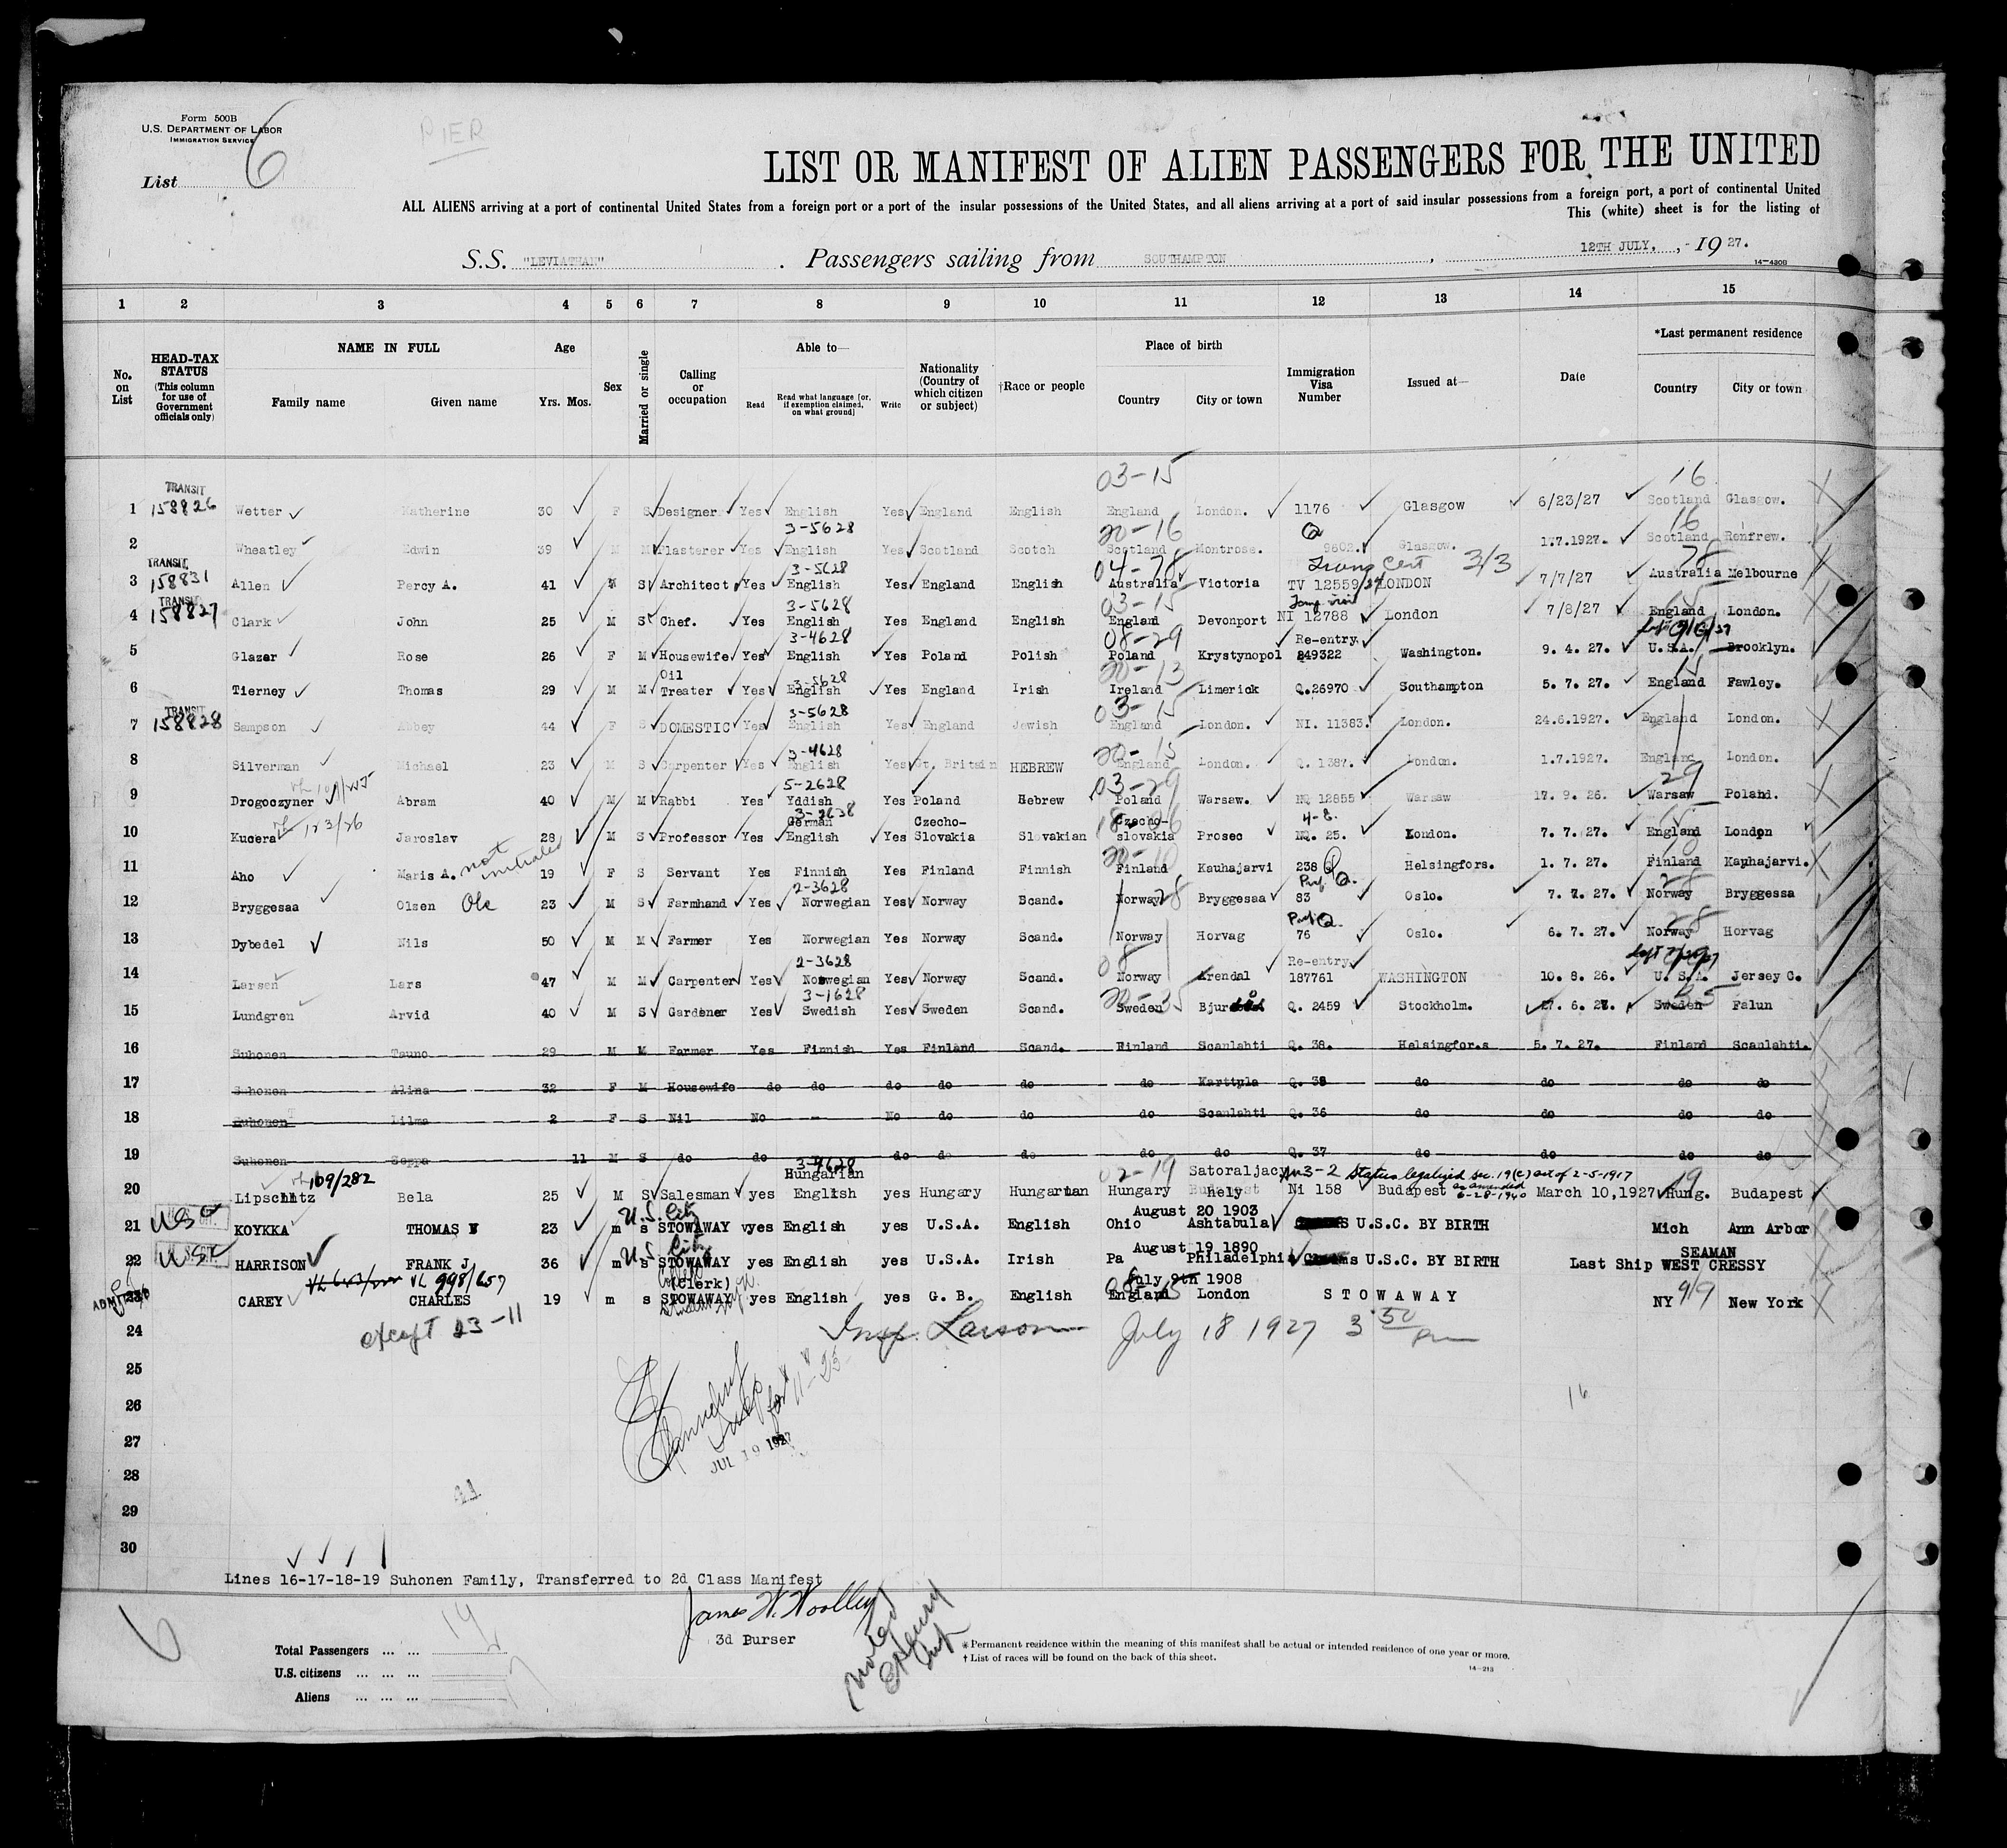 Form 500B
U.S. DEPARTMENT OF LABOR
IMMIGRATION SERVICE
PIER
List 6
LIST OR MANIFEST OF ALIEN PASSENGERS FOR THE UNITED
ALL ALIENS arriving at a port of continental United States from a foreign port or a port of the insular possessions of the United States, and all aliens arriving at a port of said insular possessions from a foreign port, a port of continental United
This (white) sheet is for the listing of
S.S. "LEVIATHAN" . Passengers sailing from SOUTHAMPTON , 12TH JULY, , 1927.
14-430B
1 2 3 4 5 6 7 8 9 10 11 12 13 14 15
No. on List
HEAD-TAX STATUS (This column for use of Government officials only)
NAME IN FULL Family name Given name
Age Yrs. Mos.
Sex
Married or single
Calling or occupation
Able to— Read Read what language [or, if exemption claimed, on what ground] Write
Nationality (Country of which citizen or subject)
†Race or people
Place of birth Country City or town
Immigration Visa Number
Issued at—
Date
*Last permanent residence Country City or town
03-15 16
1 TRANSIT 158826 Wetter Katherine 30 F S Designer Yes English Yes England English England London. 1176 Glasgow 6/23/27 Scotland Glasgow.
3-5628 20-16 Q 16
2 Wheatley Edwin 39 M M Plasterer Yes English Yes Scotland Scotch Scotland Montrose. 9602. Glasgow. 1.7.1927. Scotland Renfrew.
3-5628 04-78 Trans Cert 3/3 78
3 TRANSIT 158831 Allen Percy A. 41 M S Architect Yes English Yes England English Australia Victoria TV 12559 LONDON 7/7/27 Australia Melbourne
3-5628 03-15
4 TRANSIT 158827 Clark John 25 M S Chef. Yes English Yes England English England Devonport NI 12788 London 7/8/27 England London.
3-4628 08-29 Re-entry
5 Glazer Rose 26 F M Housewife Yes English Yes Poland Polish Poland Krystynopol 249322 Washington. 9. 4. 27. U.S.A. Brooklyn.
3-5628 20-13 15
6 Tierney Thomas 29 M M Oil Treater Yes English Yes England Irish Ireland Limerick Q.26970 Southampton 5. 7. 27. England Fawley.
3-5628 03-15
7 TRANSIT 158828 Sampson Abbey 44 F S DOMESTIC Yes English Yes England Jewish England London. NI. 11383. London. 24.6.1927. England London.
3-4628 20-15
8 Silverman Michael 23 M S Carpenter Yes English Yes Gt. Britain HEBREW England London. Q. 1387. London. 1.7.1927. England London.
5-2628 03-29 29
9 Drogoczyner Abram 40 M M Rabbi Yes Yddish Yes Poland Hebrew Poland Warsaw. NQ 12855 Warsaw 17. 9. 26. Warsaw Poland.
4-8.
10 Kucera Jaroslav 28 M S Professor Yes German English Yes Czecho-Slovakia Slovakian Czecho-slovakia Prosec NQ. 25. London. 7. 7. 27. England London
not initialed
11 Aho Maris A. 19 F S Servant Yes Finnish Yes Finland Finnish Finland Kauhajarvi 238 Q Helsingfors. 1. 7. 27. Finland Kauhajarvi.
2-3628 28
12 Bryggesaa Olsen Ole 23 M S Farmhand Yes Norwegian Yes Norway Scand. Norway Bryggesaa 83 Oslo. 7. 7. 27. Norway Bryggessa
13 Dybedel Nils 50 M M Farmer Yes Norwegian Yes Norway Scand. Norway Horvag 76 Oslo. 6. 7. 27. Norway Horvag
2-3628 Re-entry
14 Larsen Lars 47 M M Carpenter Yes Norwegian Yes Norway Scand. Norway Arendal 187761 WASHINGTON 10. 8. 26. U. S.A. Jersey C.
3-1628
15 Lundgren Arvid 40 M S Gardener Yes Swedish Yes Sweden Scand. Sweden Q. 2459 Stockholm. 27. 6. 27. Sweden Falun
16 Suhonen Tauno 29 M M Farmer Yes Finnish Yes Finland Scand. Finland Scanlahti Q. 38. Helsingfor.s 5. 7. 27. Finland Scanlahti.
17 Suhonen Alina 32 F M Housewife do do do do do do Karttula Q. 35 do do do do
18 Suhonen Lilma 2 F S Nil No - No do do do Scanlahti Q. 36 do do do do
19 Suhonen Seppa 11 M S do do do do do do do Q. 37 do do do do
109/282 3-4628 Hungarian 02-19 Status legalized sec. 19(c) act of 2-5-1917 as amended 6-28-1940
20 Lipschutz Bela 25 M S Salesman yes English yes Hungary Hungarian Hungary Satoraljac hely Ni 158 Budapest March 10,1927 Hung. Budapest
U.S. Citz August 20 1903
21 USC KOYKKA THOMAS W 23 m s STOWAWAY yes English yes U.S.A. English Ohio Ashtabula U.S.C. BY BIRTH Mich Ann Arbor
U.S. Citz August 19 1890 SEAMAN
22 USC HARRISON FRANK J 36 m s STOWAWAY yes English yes U.S.A. Irish Pa Philadelphia Claims U.S.C. BY BIRTH Last Ship WEST CRESSY
VL 998/657 (Clerk) July 9th 1908
23 ADMITTED CAREY CHARLES 19 m s STOWAWAY yes English yes G. B. English England London STOWAWAY NY 9/9 New York
24 except 23-11 Insp. Larson July 18 1927 3 50 Pm
25
26 16
27 JUL 19 1927
28
29
30
Lines 16-17-18-19 Suhonen Family, Transferred to 2d Class Manifest
James W. Woolley
3d Purser
6
Total Passengers ... ... 14
U.S. citizens ... ... ...
Aliens ... ... ...
*Permanent residence within the meaning of this manifest shall be actual or intended residence of one year or more.
† List of races will be found on the back of this sheet.
14-213